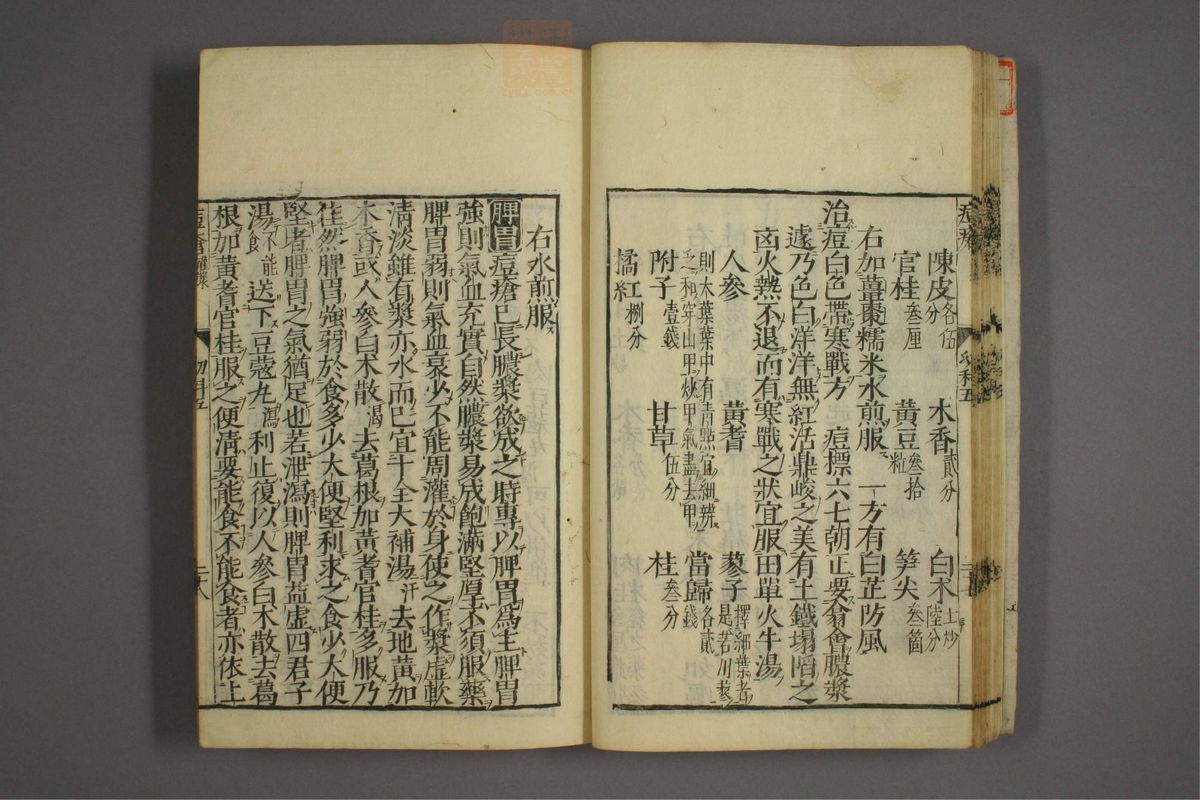 陳皮各伍分 木香貳分 白朮土炒陸分
官桂叁厘 黄豆叁拾粒 笋尖叁箇
右加薑棗糯米水煎服 一方有白芷防風
治痘白色帶寒戰方 痘標六七朝正要翕會膿漿
遽乃色白洋洋無紅活鼎峻之美有土鐵塌陷之
凶火熱不退而有寒戰之狀宜服田單火牛湯
人參 黄耆 蓼子擇細葉者是若川蓼
則大葉葉中有青點宜細辨之和穿山甲炒甲氣盡去甲 當歸各貳錢
附子壹錢 甘草伍分 桂叁分
橘紅捌分
右水煎服
脾胃痘瘡已長膿漿欲成之時專以脾胃爲主脾胃
強則氣血充實自然膿漿易成飽滿堅厚不須服藥
脾胃弱則氣血衰少不能周灌於身使之作漿虛軟
清淡雖有漿亦水而已宜十全大補湯汗去地黄加
木香或人參白朮散渴去葛根加黄耆官桂多服乃
佳然脾胃強弱於食多少大便堅利求之食少大便
堅者脾胃之氣猶足也若泄瀉則脾胃益虛四君子
湯食不能送下豆蔻丸瀉利止復以人參白朮散去葛
根加黄耆官桂服之便清要能食不能食者亦依上